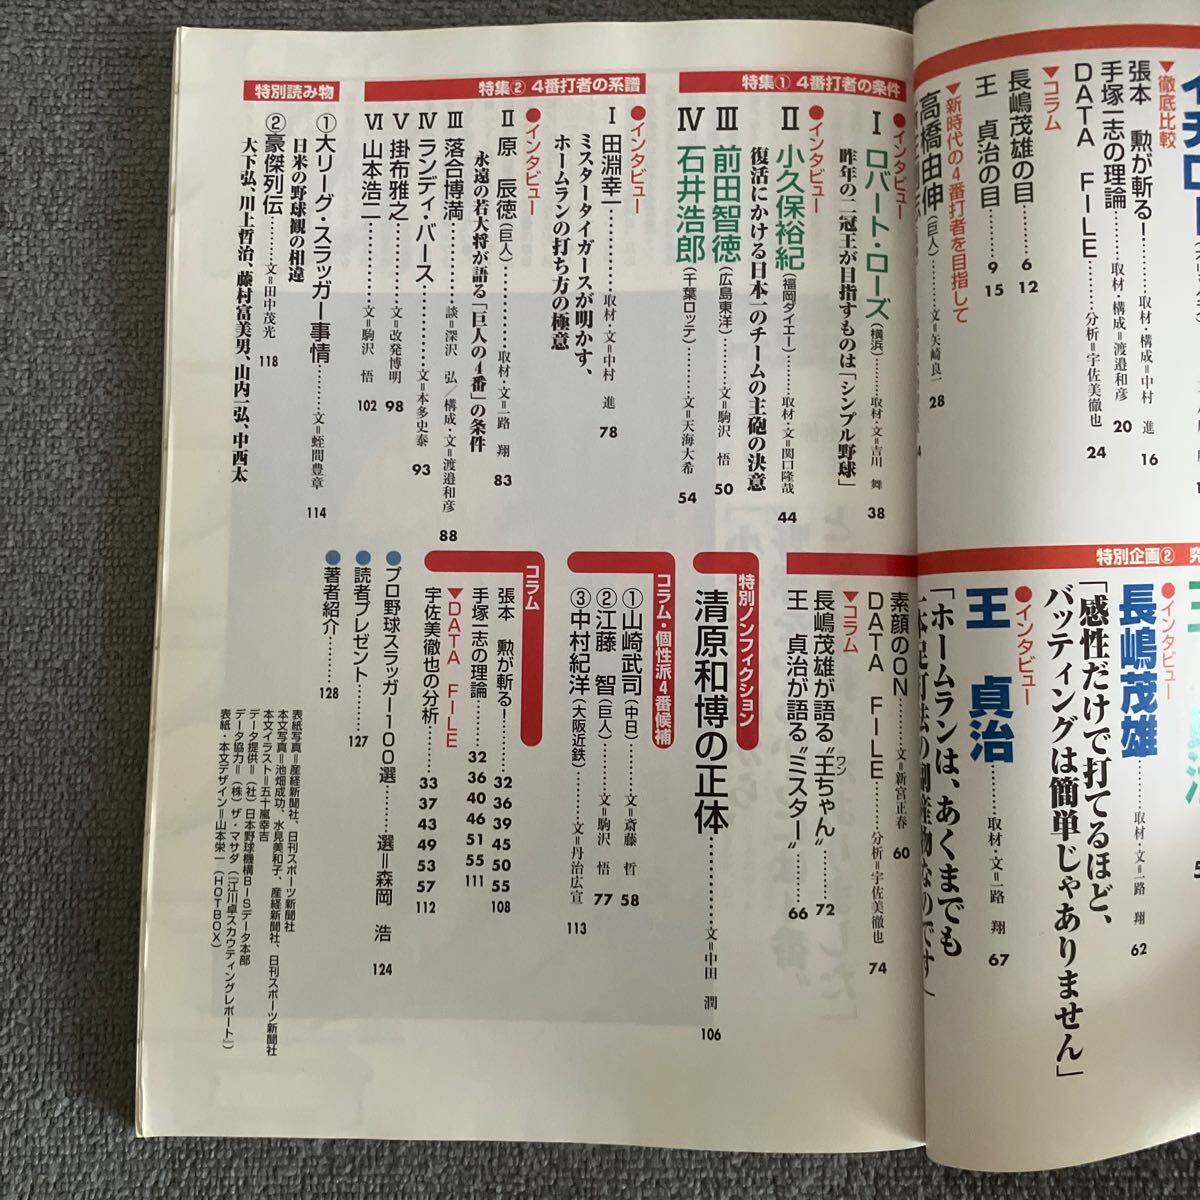 ▼徹底比較
張本　勲が斬る!………取材・構成＝中村　進　16
手塚一志の理論………取材・構成＝渡邉和彦　20
DATA　FILE………分析＝宇佐美徹也　24
▼コラム
長嶋茂雄の目………6　12
王　貞治の目………9　15
▼新時代の4番打者を目指して
高橋由伸(巨人)………文＝矢崎良一　28
特集①　4番打者の条件
●インタビュー
Ⅰ　ロバート・ローズ(横浜)………取材・文＝吉川　舞　38
昨年の二冠王が目指すものは「シンプル野球」
●インタビュー
Ⅱ　小久保裕紀(福岡ダイエー)………取材・文＝関口隆哉　44
復活にかける日本一のチームの主砲の決意
Ⅲ　前田智徳(広島東洋)………文＝駒沢　悟　50
Ⅳ　石井浩郎(千葉ロッテ)………文＝天海大希　54
特集②　4番打者の系譜
●インタビュー
Ⅰ　田淵幸一………取材・文＝中村　進　78
ミスタータイガースが明かす、
ホームランの打ち方の極意
●インタビュー
Ⅱ　原　辰徳(巨人)………取材・文＝一路　翔　83
永遠の若大将が語る「巨人の4番」の条件
Ⅲ　落合博満………談＝深沢　弘／構成・文＝渡邉和彦　88
Ⅳ　ランディ・バース………文＝本多史泰　93
Ⅴ　掛布雅之………文＝改発博明　98
Ⅵ　山本浩二………文＝駒沢　悟　102
特別読み物
①大リーグ・スラッガー事情………文＝蛭間豊章　114
日米の野球観の相違
②豪傑列伝………文＝田中茂光　118
大下弘、川上哲治、藤村富美男、山内一弘、中西太
特別企画②
●インタビュー
長嶋茂雄………取材・文＝一路　翔　62
「感性だけで打てるほど、
バッティングは簡単じゃありません」
●インタビュー
王　貞治………取材・文＝一路　翔　67
「ホームランは、あくまでも
一本足打法の副産物なのです」
素顔のON………文＝新宮正春　60
DATA　FILE………分析＝宇佐美徹也　74
▼コラム
長嶋茂雄が語る〝王ちゃん〟………72
ワン
王　貞治が語る〝ミスター〟………66
特別ノンフィクション
清原和博の正体………文＝中田　潤　106
コラム・個性派4番候補
①山﨑武司(中日)………文＝斎藤　哲　58
②江藤　智(巨人)………文＝駒沢　悟　77
③中村紀洋(大阪近鉄)………文＝丹治広宣　113
コラム
張本　勲が斬る!………32　36　39　45　50　55　108
手塚一志の理論………32　36　40　46　51　55　111
▼DATA　FILE
宇佐美徹也の分析………33　37　43　49　53　57　112
●プロ野球スラッガー100選………選＝森岡　浩　124
●読者プレゼント………127
●著者紹介………128
表紙写真＝産経新聞社、日刊スポーツ新聞社
本文写真＝池畑成功、水見美和子、産経新聞社、日刊スポーツ新聞社
本文イラスト＝五十嵐幸吉
データ提供＝(社)日本野球機構BISデータ本部
データ協力＝(株)ザ・マサダ(『江川卓スカウティングレポート』)
表紙・本文デザイン＝山本栄一(HOTBOX)